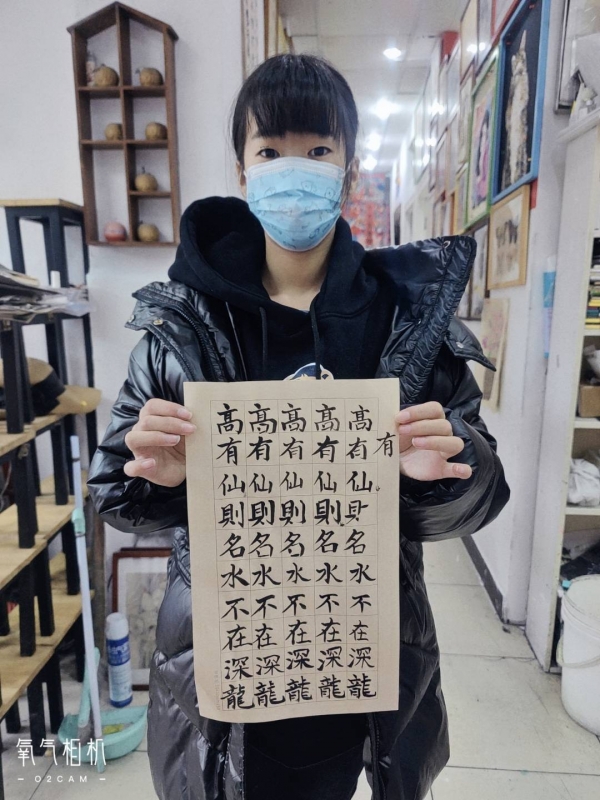 有
髙有仙則名水不在深龍
髙有仙則名水不在深龍
髙有仙則名水不在深龍
髙有仙則名水不在深龍
髙有仙則名水不在深龍
氧气相机
– O2CAM –